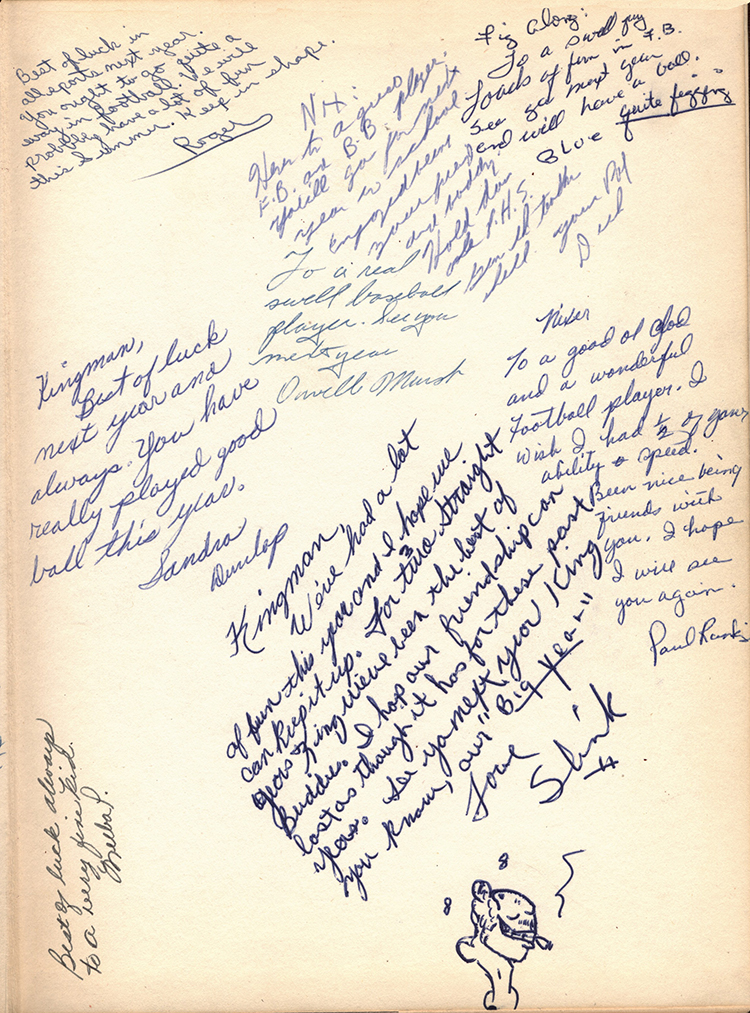 Best of luck in
all sports next year.
You ought to go quite a
way in football. We will
probably have a lot of fun
this summer. Keep in shape.
Roger
NH:
Here to a good
F.B. and B.B. player.
You'll go far next
year in school
Enjoyed been
your friend
and buddy
Hold down
ole P.H.S.
your Pal
Fig along:
To a swell guy
Loads of fun in F.B.
See ya next year
and will have a ball.
Blue
quite figging
To a real
swell baseball
player. See you
next year
Orvell Marsh
Kingman,
Best of luck
next year and
always. You have
really played good
ball this year.
Sandra
Dunlap
Nixer
To a good ol Glod
and a wonderful
Football player. I
wish I had 1/2 of your
ability & speed.
Been nice being
friends with
you. I hope
I will see
you again.
Paul
Kingman,
We've had a lot
of fun this year and I hope we
can keep it up. For 3 straight
years King we've been the best of
Buddies. I hope our friendship can
last as though it has for these past
years. See ya next year King
you know, our "Big Year"
Love
Slink
Best of luck always
to a very fine kid.
Melba P.